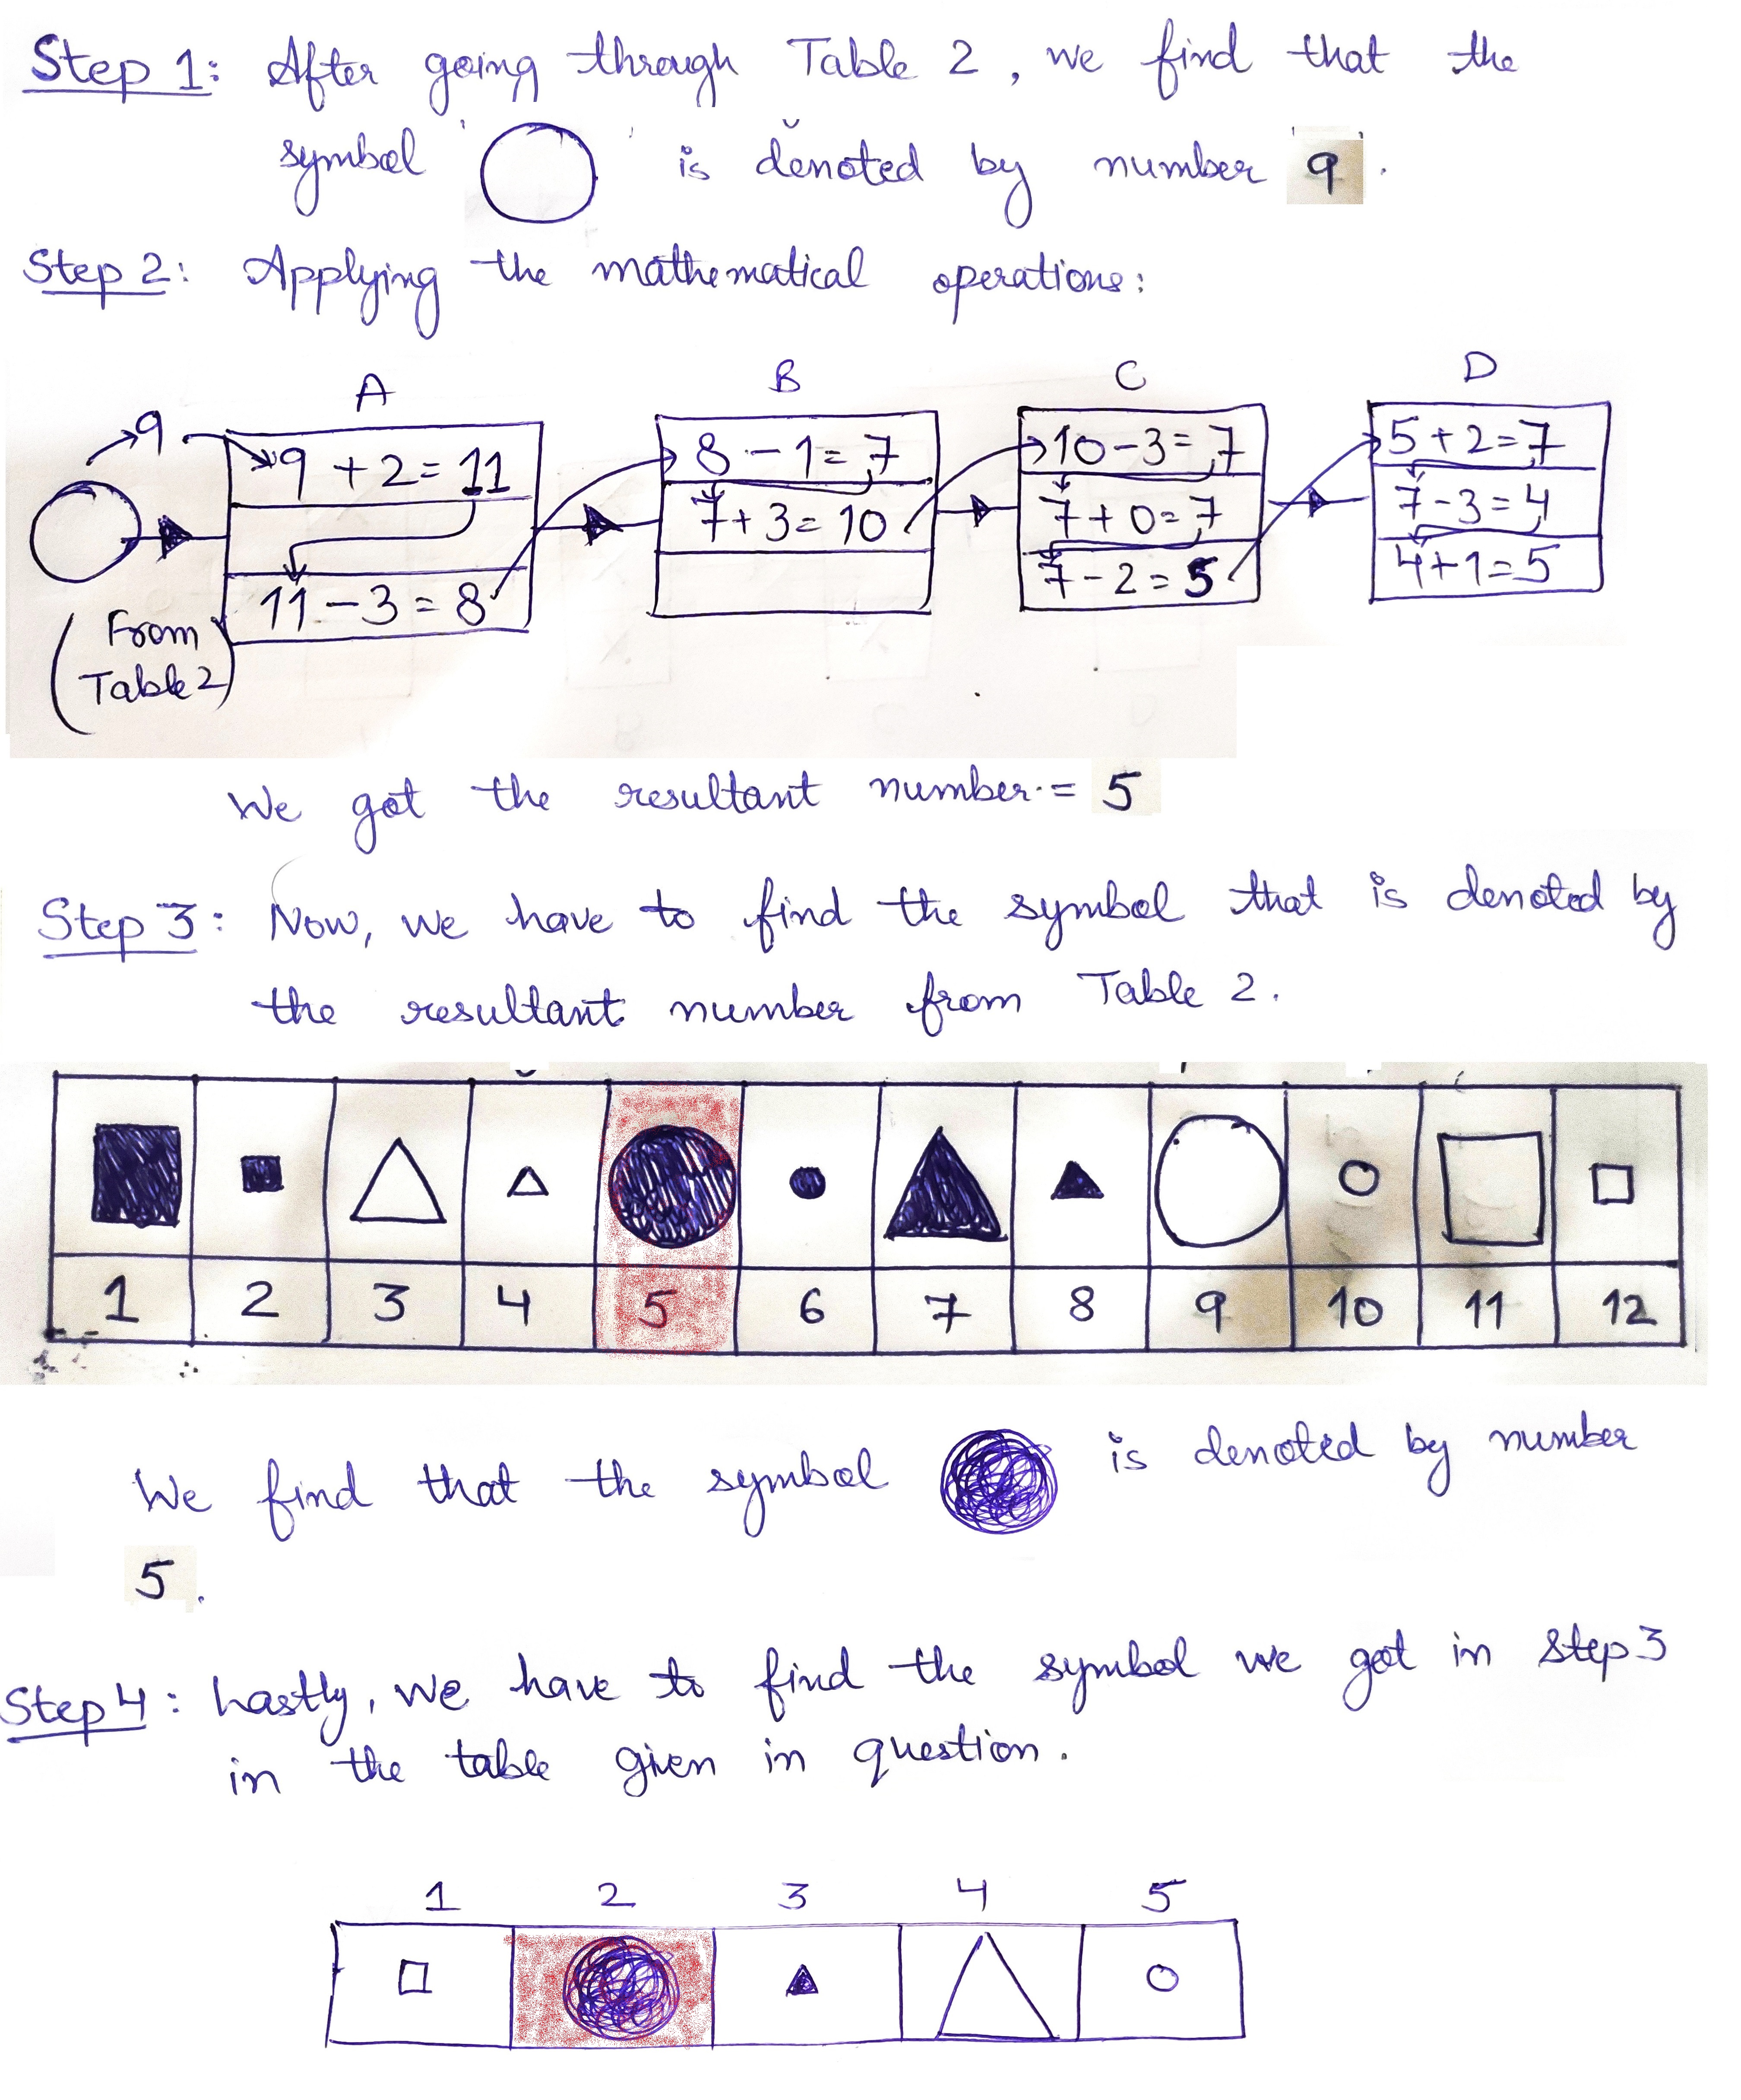 Step 1: After going through Table 2, we find that the
symbol ' ' is denoted by number '9'.
Step 2: Applying the mathematical operations:
A B C D
9
9 + 2 = 11
8 - 1 = 7
10 - 3 = 7
5 + 2 = 7
7 + 3 = 10
7 + 0 = 7
7 - 3 = 4
11 - 3 = 8
7 - 2 = 5
4 + 1 = 5
(From
Table 2)
We got the resultant number = 5
Step 3: Now, we have to find the symbol that is denoted by
the resultant number from Table 2.
1 2 3 4 5 6 7 8 9 10 11 12
We find that the symbol is denoted by number
5.
Step 4: Lastly, we have to find the symbol we got in step 3
in the table given in question.
1 2 3 4 5